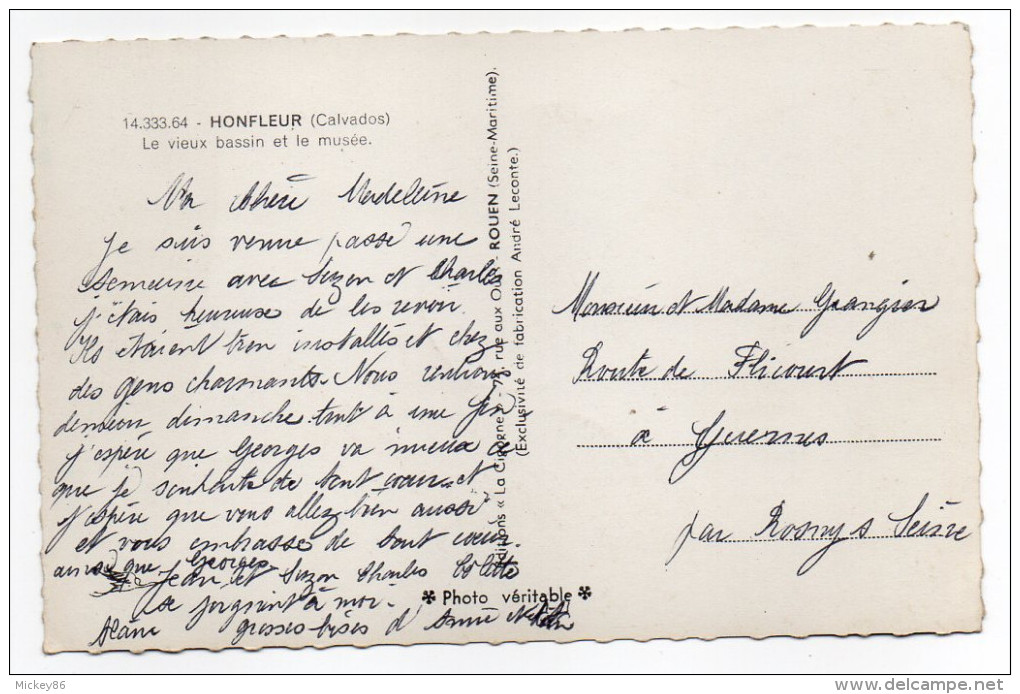 14.333.64 - HONFLEUR (Calvados)
Le vieux bassin et le musée.
Ma Chère Madeleine
Je suis venue passé une
semaine avec Suzon et Charles
j'étais heureuse de les revoir.
Ils étaient bien installés et chez
des gens charmants. Nous rentrions
dimanche tout à une fin
j'espère que Georges va mieux
que je souhaite de tout coeur et
j'espère que vous allez bien aussi
et vous embrasse de tout coeur
ainsi que Georges
Jean et Suzon Charles Colette
se joignent à moi.
Alain grosses bises d'Annie
Editions « La Cigogne » - rue aux Ours - ROUEN (Seine-Maritime).
(Exclusivité de fabrication André Leconte.)
Photo véritable
Monsieur et Madame Grangier
Route de Flicourt
à Guernes
par Rosny s Seine
Mickey86
delcampe.net